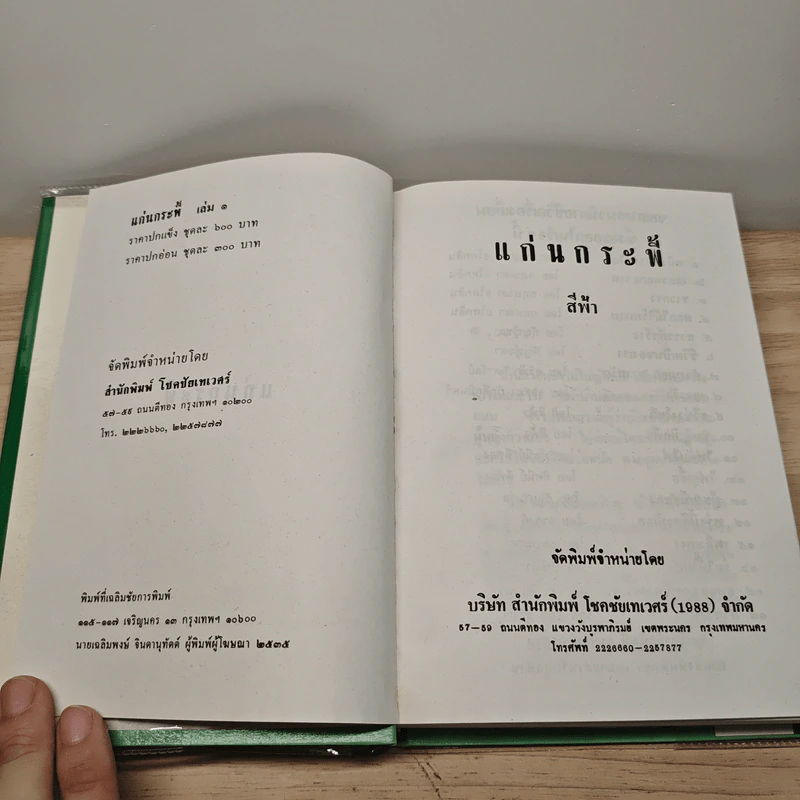 แก่นกระพี้ เล่ม ๑
ราคาปกแข็ง ชุดละ ๖๐๐ บาท
ราคาปกอ่อน ชุดละ ๓๐๐ บาท
จัดพิมพ์จำหน่ายโดย
สำนักพิมพ์ โชคชัยเทเวศร์
๕๗-๕๙ ถนนตีทอง กรุงเทพฯ ๑๐๒๐๐
โทร. ๒๒๒๖๖๖๐, ๒๒๕๗๘๗๗
พิมพ์ที่เฉลิมชัยการพิมพ์
๑๑๕-๑๑๗ เจริญนคร ๑๓ กรุงเทพฯ ๑๐๖๐๐
นายเฉลิมพงษ์ จินดานุทัดต์ ผู้พิมพ์ผู้โฆษณา ๒๕๓๕
แก่นกระพี้
สีฟ้า
จัดพิมพ์จำหน่ายโดย
บริษัท สำนักพิมพ์ โชคชัยเทเวศร์ (1988) จำกัด
57-59 ถนนตีทอง แขวงวังบูรพาภิรมย์ เขตพระนคร กรุงเทพมหานคร
โทรศัพท์ 2226660-2257877